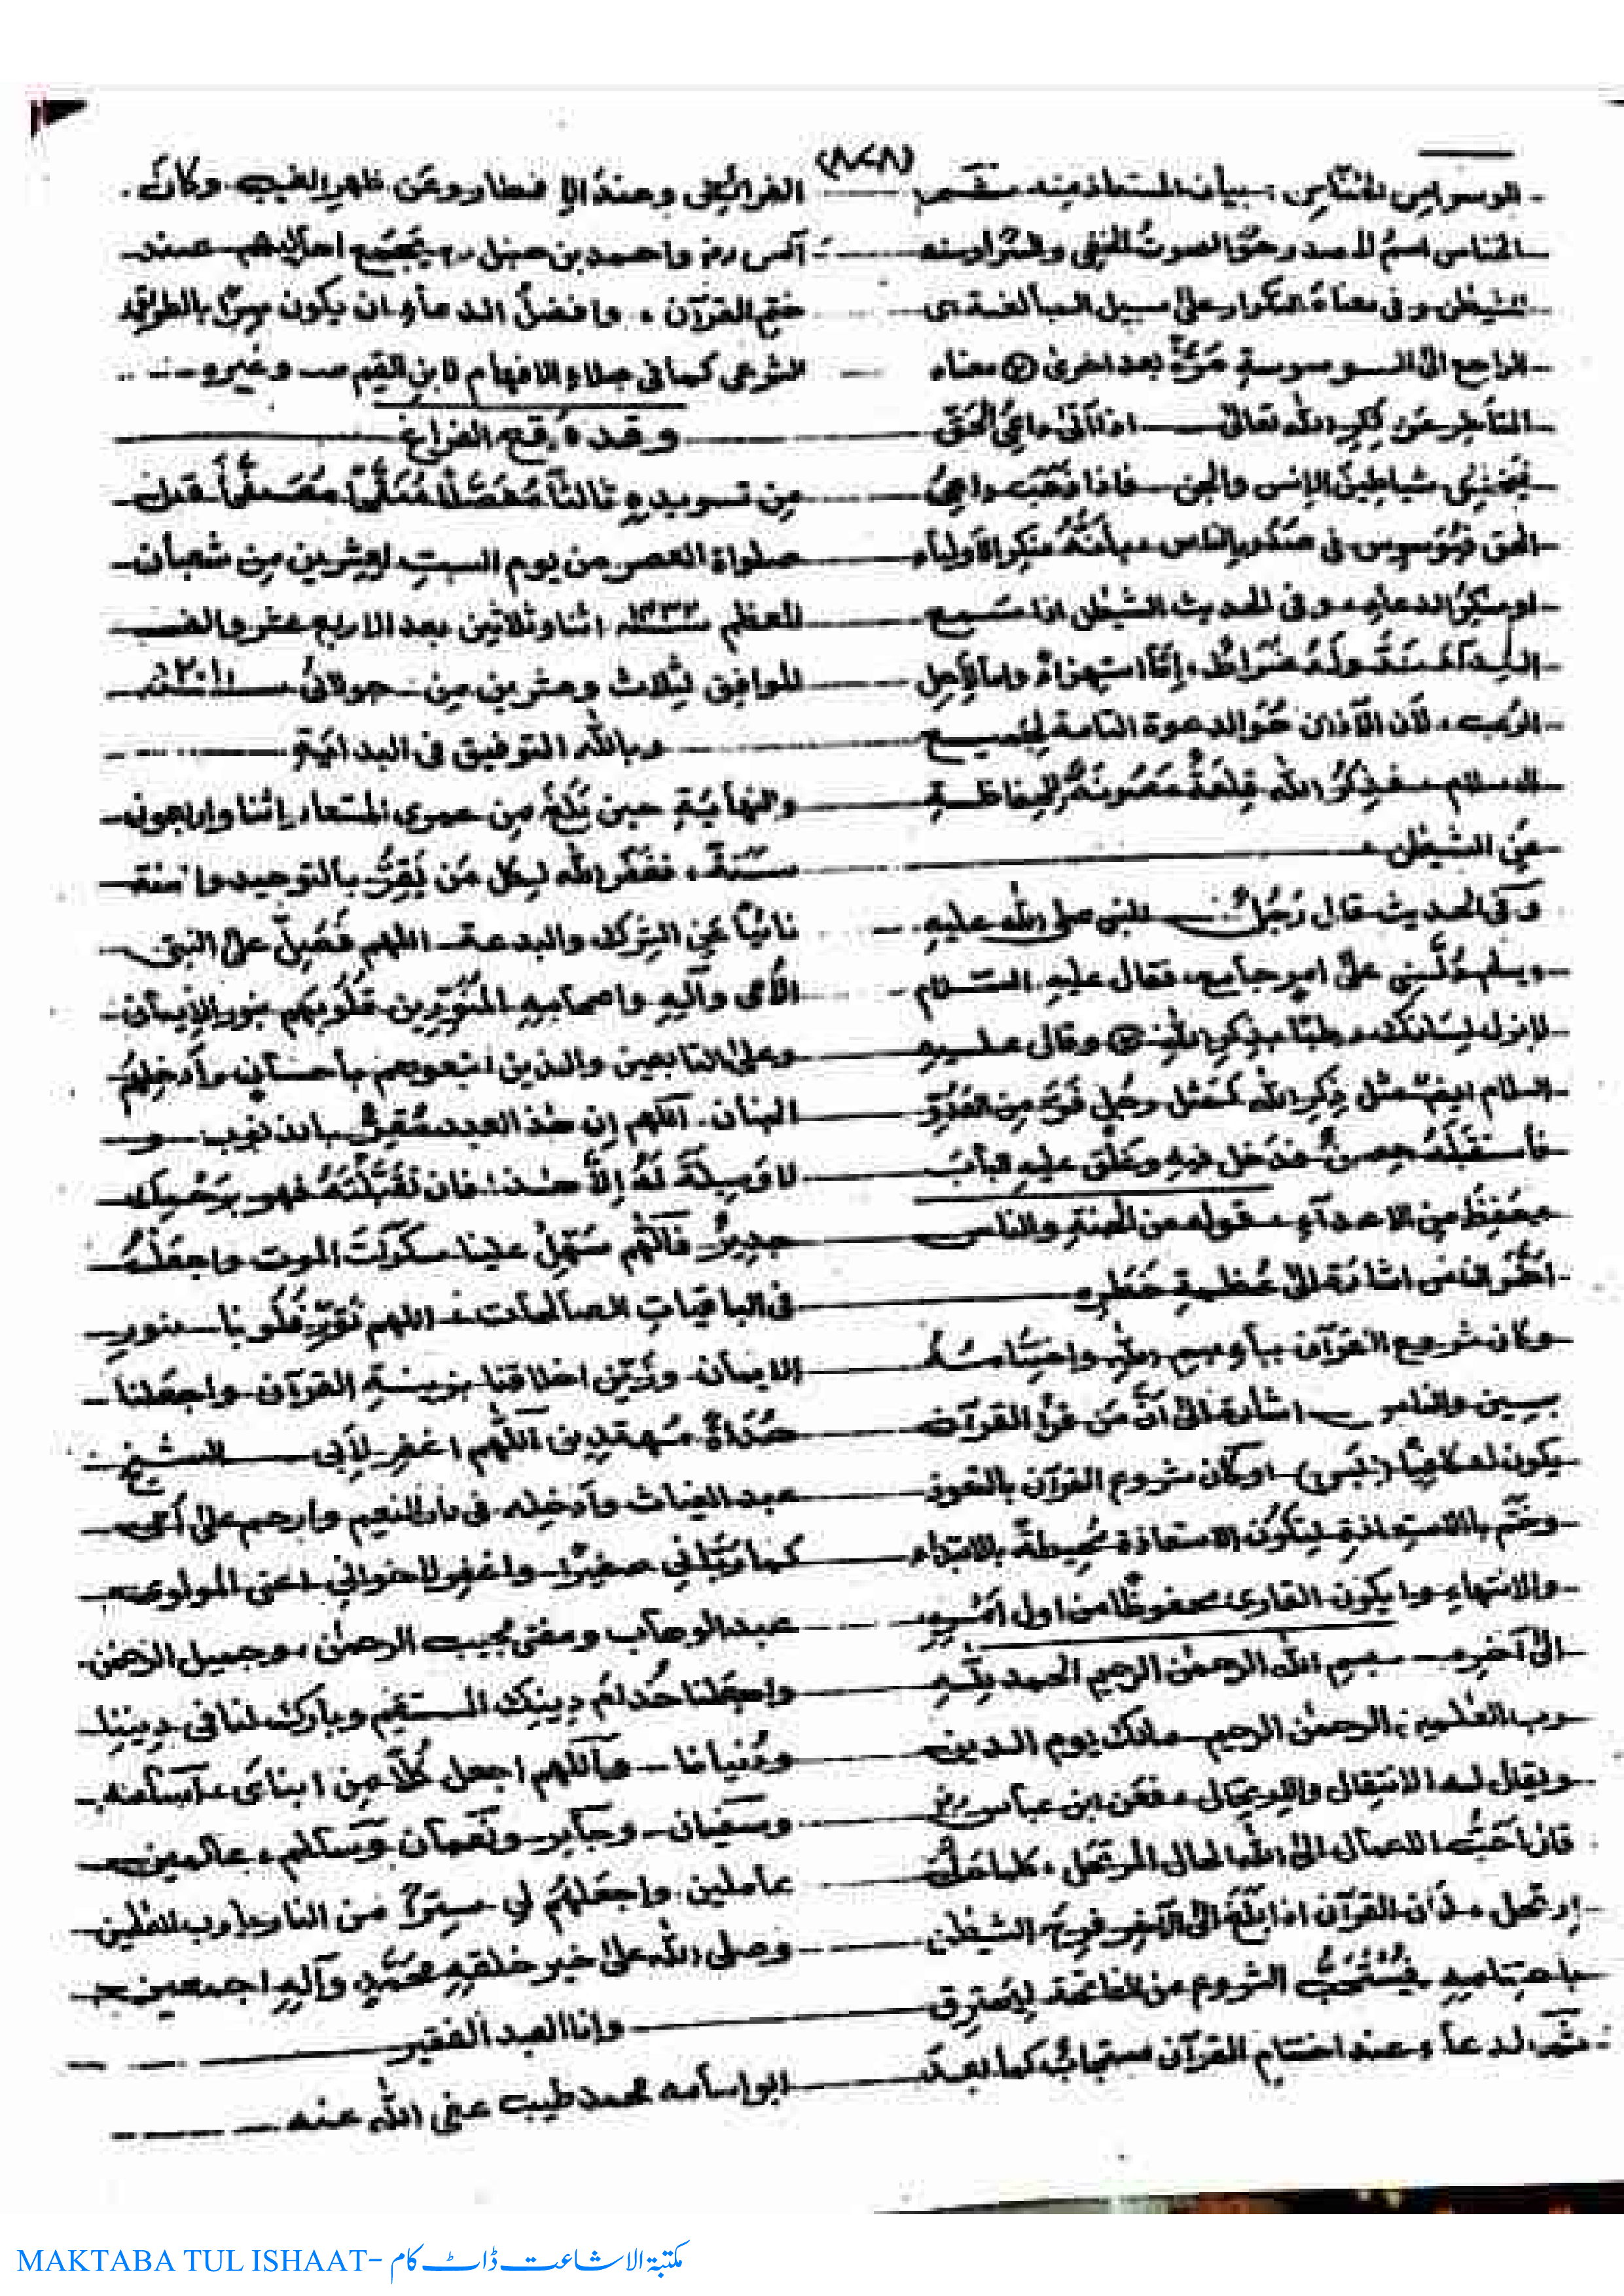 (٨٧٨)
الوسواس الخناس: بيان المستعاذ منه
الخناس اسم للمصدر وهو الصوت الخفي والمراد منه
الشيطن و في معناه التكرار على سبيل المبالغة اى
الراجع الى الوسوسة مرّة بعد اخرى ② معناه
المتأخر عن ذكر الله تعالى اذا أتى داعي الحق
شياطين الإنس والجن فاذا ذهب داعي
الحق فيوسوس في صدور الناس بأنه منكر الاولياء
او منكر الدعاء، و في الحديث الشيطن اذا سمع
وله ضراط، إمّا استهزاءً واما لأجل
الرعب، لأن الآذان هو الدعوة التامة لجميع
فذكر الله قلعة مصونة للحفاظة
عن الشيطن
و في الحديث قال رجل للنبي صلى الله عليه
وسلم دُلّني على امر جامع، فقال عليه السّلام
لا يزل لسانك رطبًا بذكر الله ③ وقال عليه
السلام ايضًا مثل ذكر الله كمثل رجل فرّ من العدوّ
فأستقبله حصنٌ فدخل فيه وغلّق عليه الباب
من الاعدآء، قوله من الجنة والناس
اخّر الناس اشارة الى عظمة خطره
وكان شروع القرآن بباء بسم الله واختتامه
بسين والناس اشارة الى أنّ من قرأ القرآن
يكون له كافيًا (بَس) او كان شروع القرآن بالتعوذ
وختم بالاستعاذة ليكون الاستعاذة محيطة بالابتداء
والانتهاء و ليكون القارى محفوظا من اول امره
الى آخره بسم الله الرحمن الرحيم الحمد لله
رب العلمين الرحمن الرحيم مالك يوم الدين
ويقال له الانتقال والارتحال فعن ابن عباس رض
قال أحبّ الاعمال الى الله الحال المرتحل، كلما حلّ
ارتحل، لأن القرآن اذا بلغ الى الآخر فرح الشيطن
باختتامه فيستحبّ الشروع من الفاتحة
ثم الدعاء عند اختتام القرآن مستجاب كما بعد
الفرائض وعند الافطار وعن ظهر الغيب وكان
أنس رض واحمد بن حنبل رح يجمع اهاليهم عند
ختم القرآن، وافضل الدعاء ان يكون سرًّا بالطريق
الشرعي كما في جلاء الافهام لابن القيم وغيره
وقد وقع الفراغ
من تسويده ثالثًا مفصّلًا قبل
صلواة العصر من يوم السبت لعشرين من شعبان
المعظم ١٤٣٢ اثنا وثلاثين بعد الاربع عشر والف
الموافق لثلاث وعشرين من جولائى ٢٠١١
وبالله التوفيق في البداية
والنهاية حين بلغ من عمرى المستعار اثنا واربعون
سنة، فغفر الله لكل من يقرّ بالتوحيد والسنة
نائيًا عن الشرك والبدعة اللهم فصلّ على النبي
الأمي وآله واصحابه المنوّرين قلوبهم بنور الإيمان
وعلى التابعين والذين اتبعوهم بأحسان وأدخلهم
الجنان. اللهم إن هذ العبد مقرٌّ بالذنوب و
لا وسيلة له إلّا هذا: فان تقبّلته فهو برحمتك
جديرٌ فاللهم سهّل علينا سكرات الموت واجعله
في الباقيات الصالحات: اللهم نوّر قلوبنا بنور
الايمان وزيّن اخلاقنا بزينة القرآن واجعلنا
هُداة مهتدين اللهم اغفر لأبي الشيخ
عبد الغياث وأدخله في دار النعيم وارحم على أمي
كما ربّياني صغيرًا واغفر لاخواني اعنى المولوى
عبد الوهاب ومفتى مجيب الرحمن، وجميل الرحمن
واجعلنا خدام دينك المستقيم وبارك لنا في ديننا
ودنيانا واللهم اجعل كلّا من ابنائى، أسامه
وسفيان وجابر ونعمان وسالم، عالمين
عاملين واجعلهم لي سترًا من النار يا رب العلمين
وصلى الله على خير خلقه محمّد وآله اجمعين
وانا العبد الفقير
ابو اسامه محمد طيب عفى الله عنه
MAKTABA TUL ISHAAT- مکتبۃ الاشاعت ڈاٹ کام